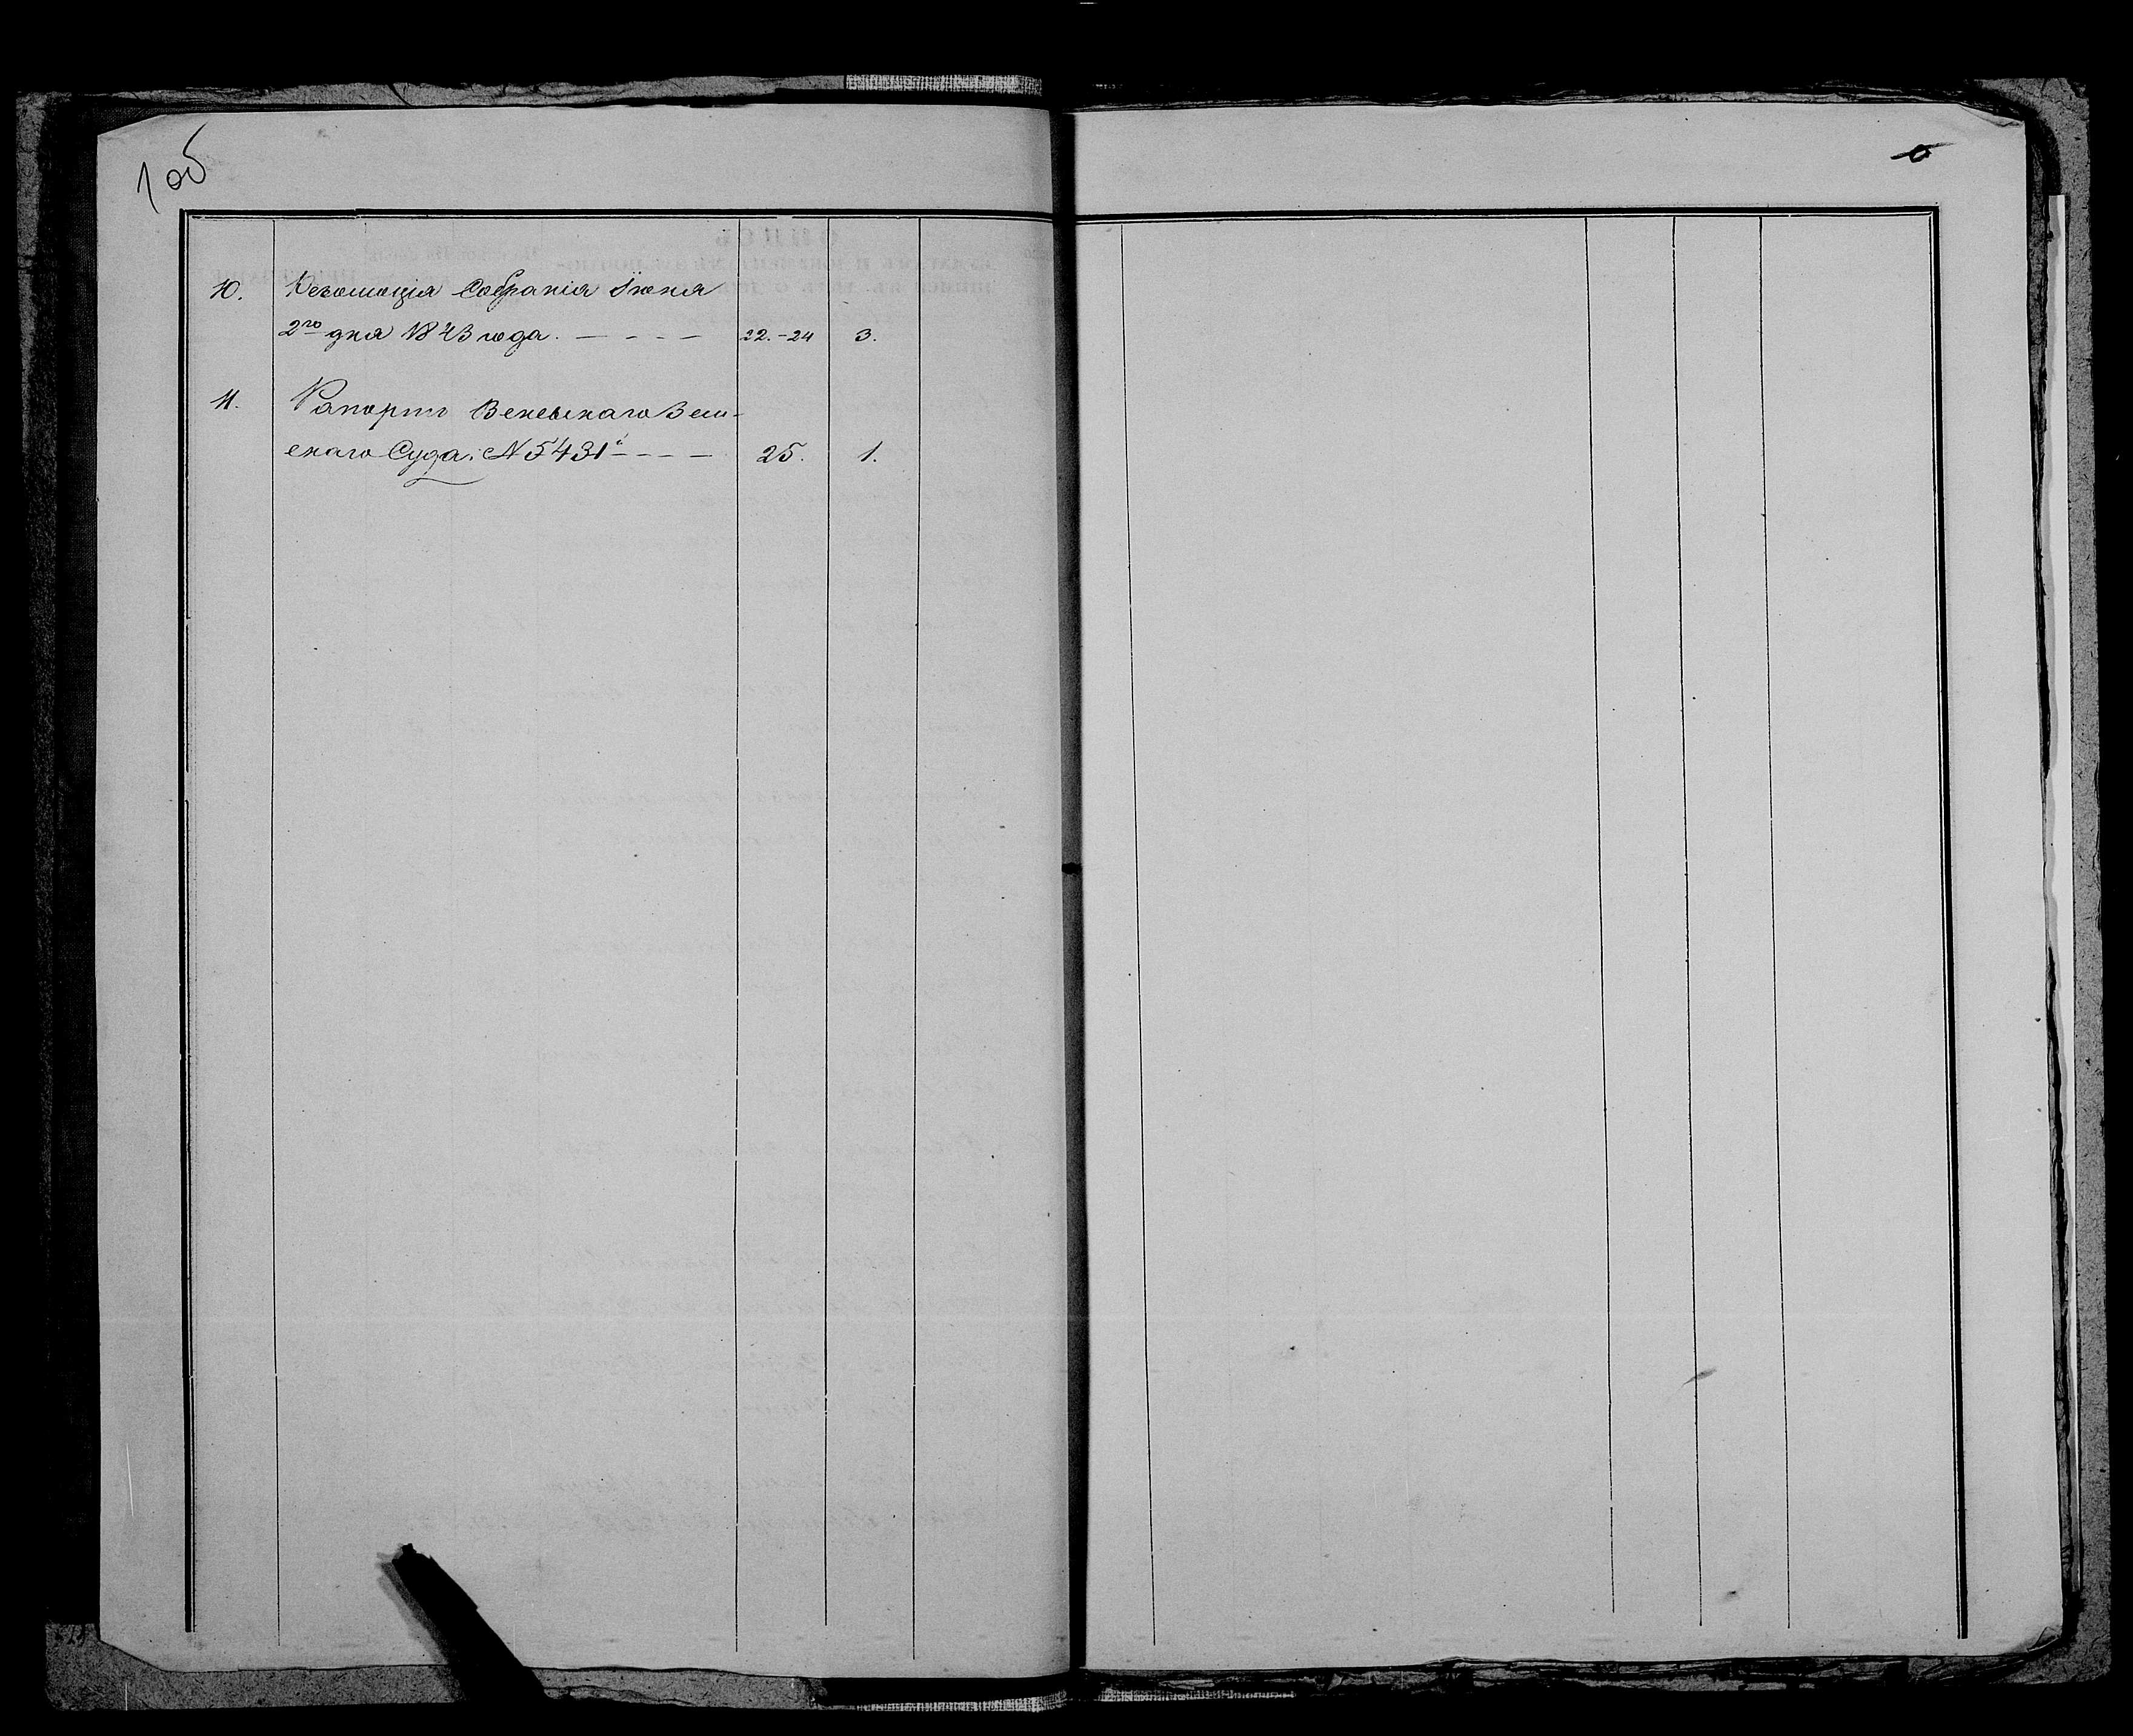 1 об
10. Резолюція Собранія Іюня
2го дня 1843 года. — - - - — 22.-24 3.
11. Рапортъ Веневскаго Зем-
скаго Суда. № 5431й - - - — 25. 1.